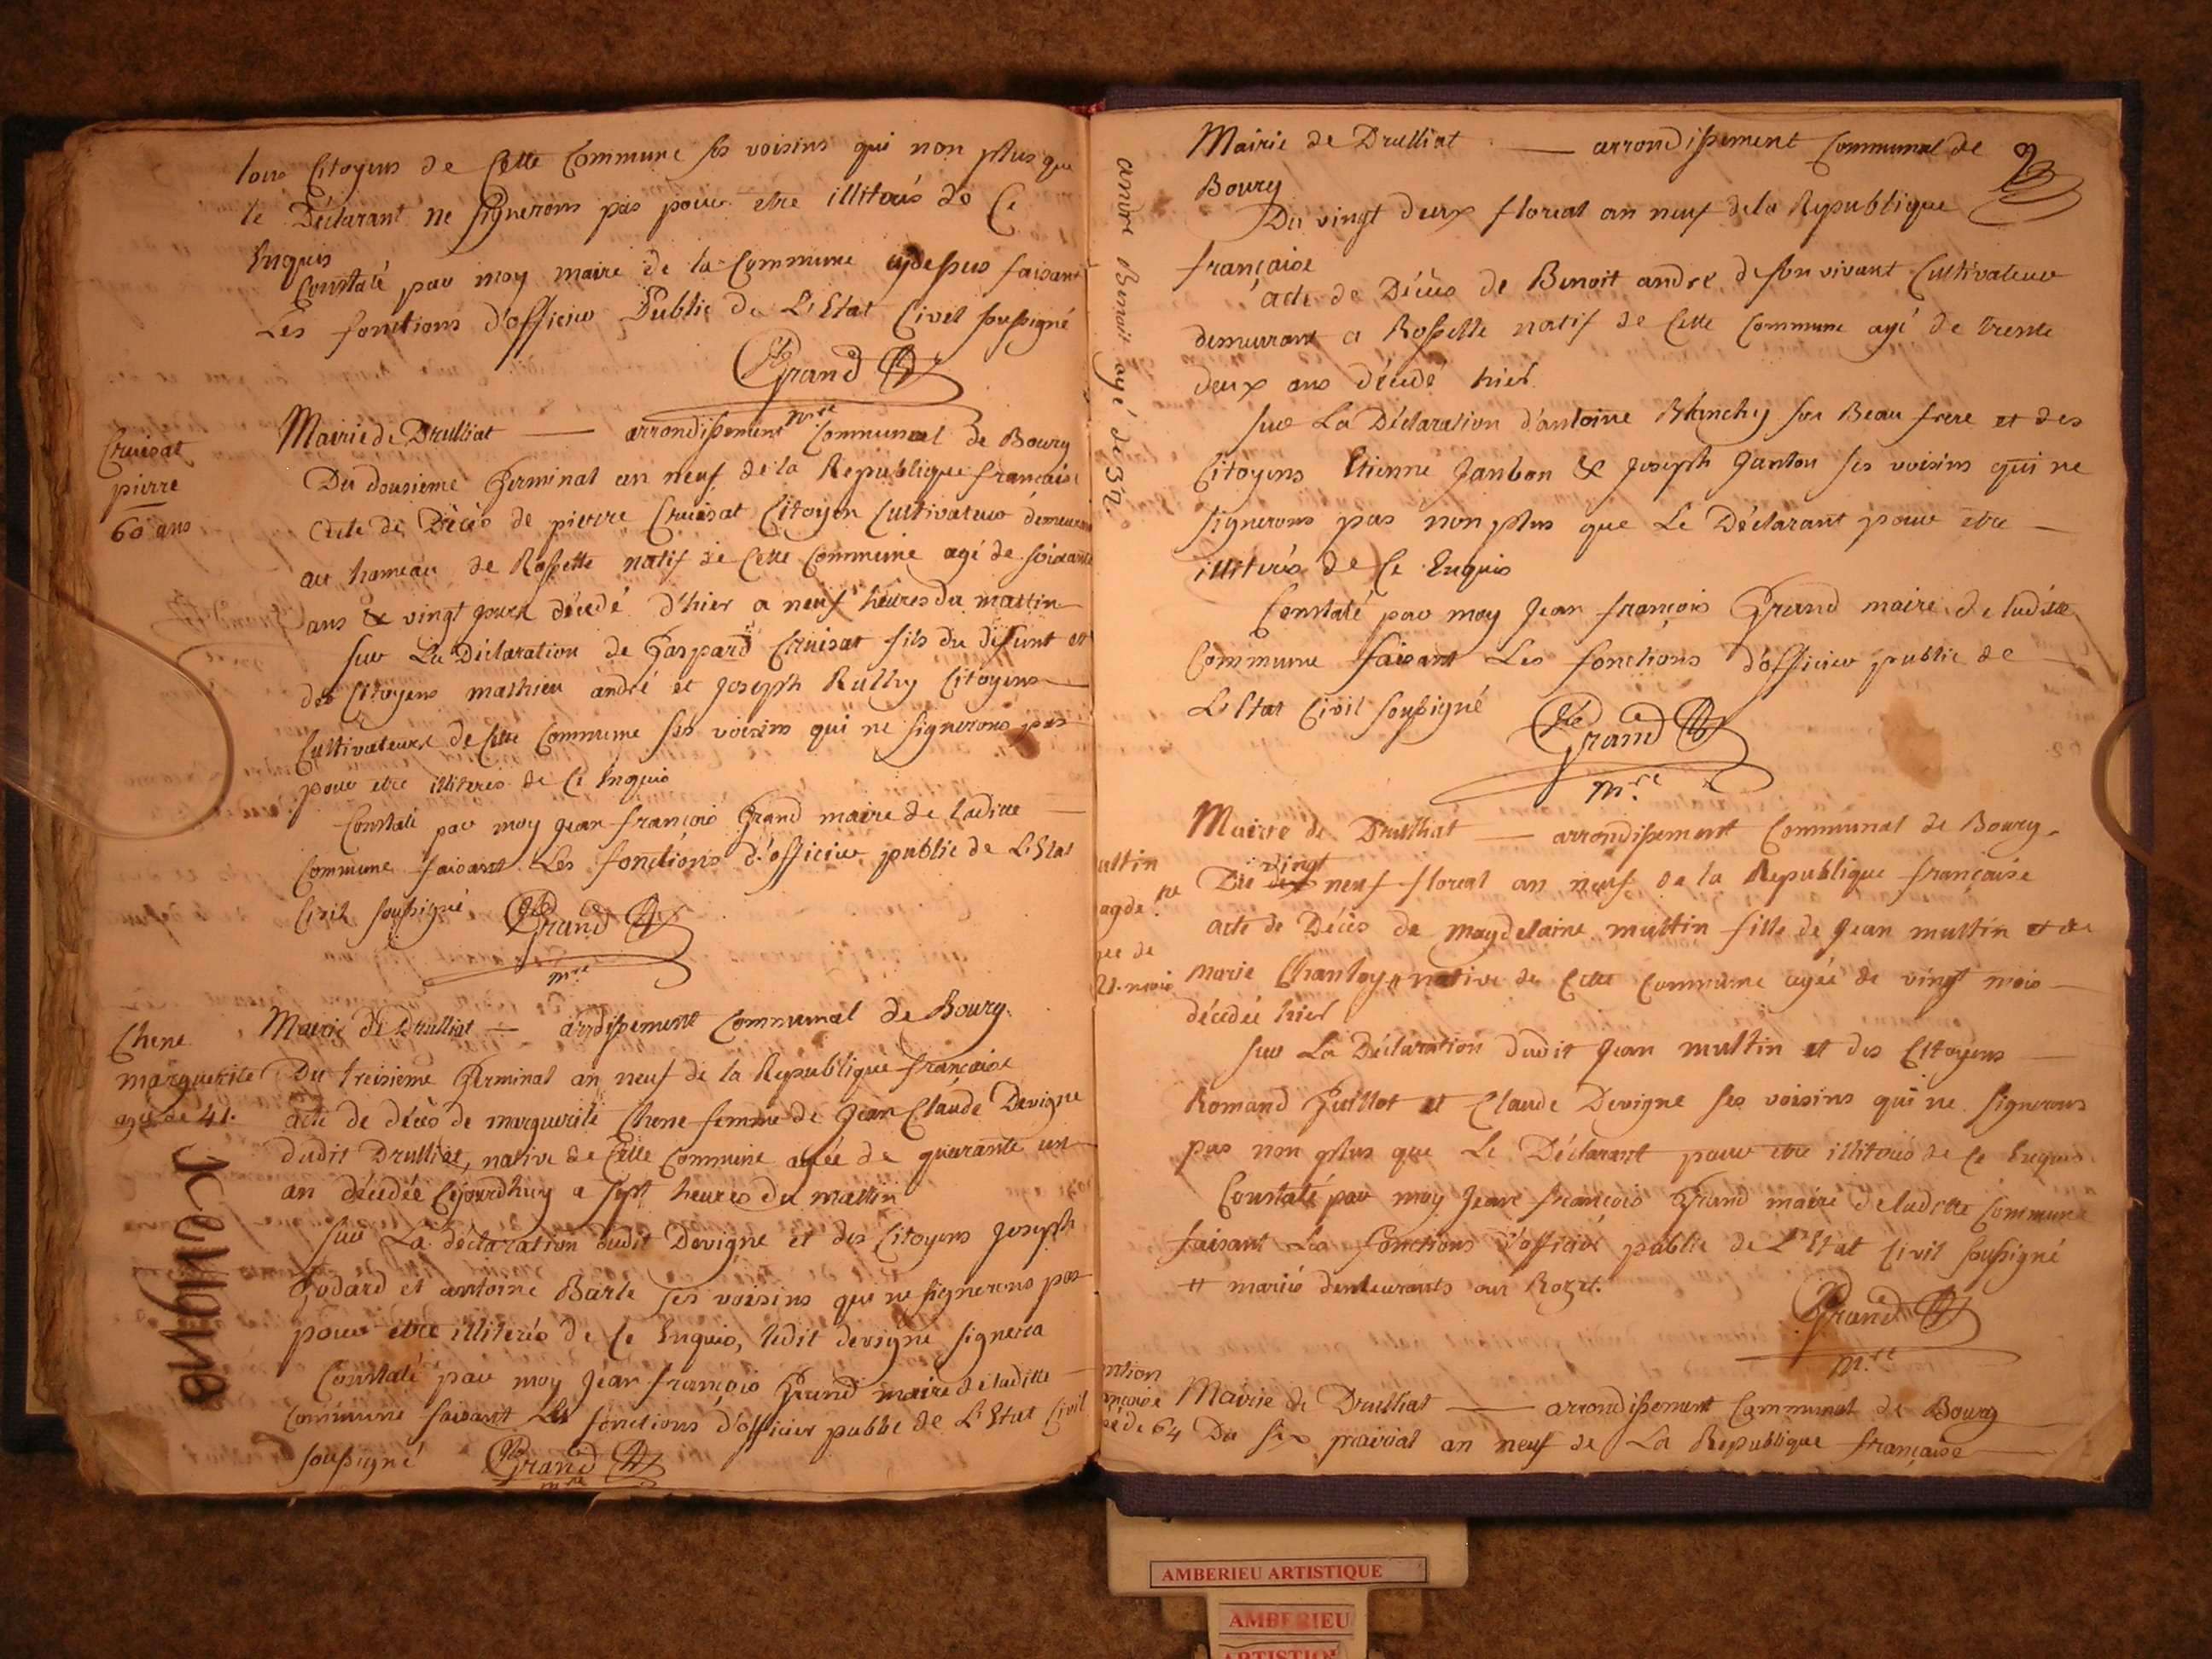 tous Citoyens de Cette Commune ses voisins qui non plus que
le Déclarant ne signerons pas pour etre illiterés de Ce
Enquis
Constaté par moy maire de la Commune cydessus faisant
Les fonctions d'officier Public de L'Etat Civil soussigné
Grand
mre
Cruisat
pierre
60 ans
Mairie de Drulliat — arrondissement Communal de Bourg
Du dousieme Germinal an neuf de la Republique française
acte de Décès de pierre Cruisat Citoyen Cultivateur demeurant
au hameau de Rossette natif de Cette Commune agé de soixante
ans & vingt jours décedé d'hier a neuf heures du mattin
sur La Déclaration de Gaspard Cruisat fils du défunt et
des Citoyens mathieu andré et Joseph Ruthy Citoyens
Cultivateurs de Cette Commune ses voisins qui ne signerons pas
pour etre illiteres de Ce Enquis
Constaté par moy Jean françois Grand maire de laditte
Commune faisant Les fonctions d'officier public de L'Etat
Civil soussigné Grand
mre
Chene
marguerite
agée de 41.
Mairie de Drulliat — ardissement Communal de Bourg.
Du treisieme Germinal an neuf de la Republique française
acte de décès de marguerite Chene femme de Jean Claude Devigne
dudit Drulliat, native de Cette Commune agée de quarante un
an décedée Cejourdhuy a sept heures du mattin
sur La déclaration dudit Devigne et des Citoyens Joseph
Godard et antoine Barle ses voisins qui ne signerons pas
pour etre illiterés de Ce Enquis, ledit devigne signera
Constaté par moy Jean françois Grand maire de laditte
Commune faisant Les fonctions d'officier public de L'Etat Civil
soussigné Grand
mre
andré Benoit agé de 32.
Mairie de Drulliat — arrondissement Communal de
Bourg
Du vingt deux floreal an neuf de la Republique
française
acte de Décès de Benoit andré de son vivant Cultivateur
demeurant a Rossette natif de Cette Commune agé de trente
deux ans décedé hier
sur La Déclaration d'antoine Blanchy son Beau frere et des
Citoyens Etienne Janbon & Joseph Janton ses voisins qui ne
signerons pas non plus que Le Déclarant pour etre
illiterés de Ce Enquis
Constaté par moy Jean françois Grand maire de laditte
Commune faisant Les fonctions d'officier public de
L'Etat Civil soussigné Grand
mre
ultin
agdene
ée de
21 mois
Mairie de Drulliat — arrondissement Communal de Bourg.
Du vingt neuf floreal an neuf de la Republique française
acte de Décès de magdelaine multin fille de Jean multin et de
marie Chanloy # native de Cette Commune agée de vingt mois
décedée hier
sur La Déclaration dudit Jean multin et des Citoyens
Romand Guillot et Claude Devigne ses voisins qui ne signerons
pas non plus que Le Déclarant pour etre illiterés de Ce Enquis
Constaté par moy Jean françois Grand maire de laditte Commune
faisant Les fonctions d'officier public de L'Etat Civil soussigné
# mariés demeurants au Rozet.
Grand
mre
nçoise
ée de 64
Mairie de Drulliat — arrondissement Communal de Bourg
Du six prairial an neuf de La Republique française
AMBERIEU ARTISTIQUE
AMBERIEU
ARTISTIQ